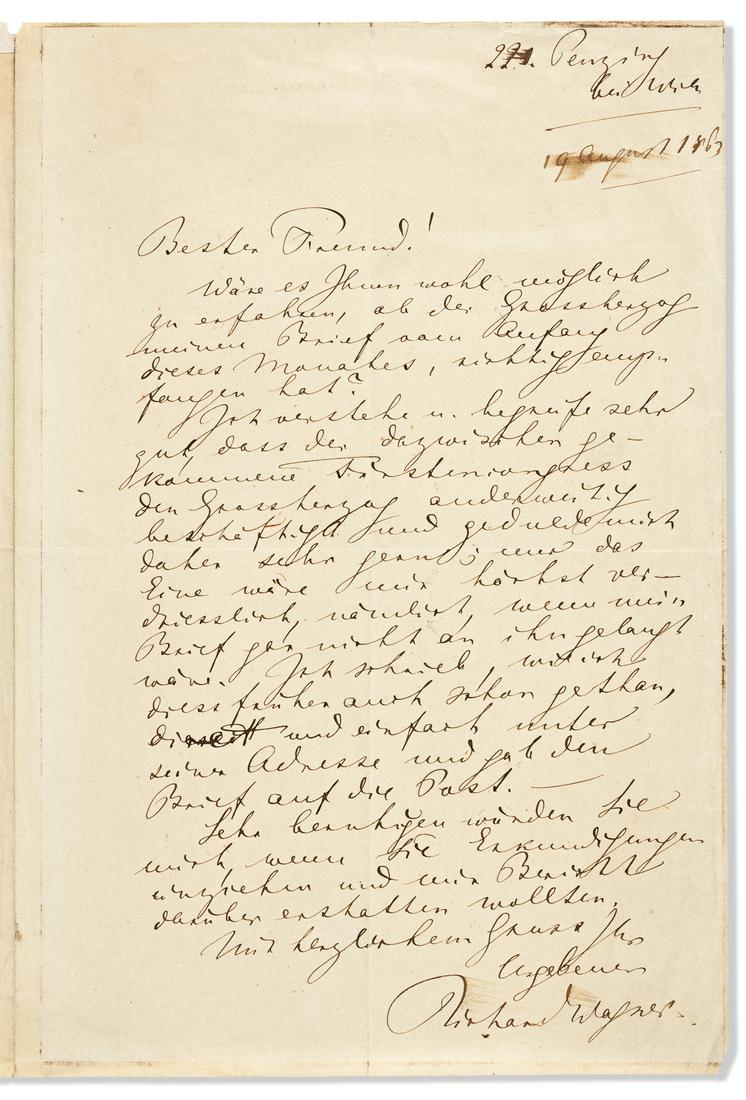 221. Penzing
bei Wien
19 August 1863
Bester Freund!
Wäre es Ihnen wohl möglich
zu erfahren, ob der Grossherzog
meinen Brief vom Anfang
dieses Monates, richtig emp-
fangen hat?
Ich verstehe u. begreife sehr
gut, dass der dazwischen ge-
kommene Fürstencongress
den Grossherzog anderweitig
beschäftigt und gedulde mich
daher sehr gern; nur das
Eine wäre mir höchst ver-
driesslich, nämlich, wenn mein
Brief gar nicht an ihn gelangt
wäre. Ich schrieb, wie ich
diess früher auch schon gethan,
direct und einfach unter
seiner Adresse und gab den
Brief auf die Post. —
Sehr beruhigen würden Sie
mich, wenn Sie Erkundigungen
einziehen und mir Bericht
darüber erstatten wollten.
Mit herzlichem Gruss Ihr
ergebener
Richard Wagner.